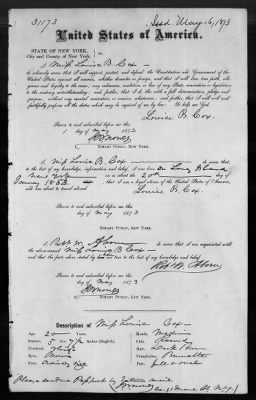 31173
Issd May 16, 1873
United States of America.
STATE OF NEW YORK,
City and County of New York. } ss.
I Miss Louise B. Cox
do solemnly swear that I will support, protect, and defend the Constitution and Government of the
United States against all enemies, whether domestic or foreign, and that I will bear true faith, alle-
giance and loyalty to the same, any ordinance, resolution or law of any State, convention or legislature
to the contrary notwithstanding; and further, that I do this with a full determination, pledge and
purpose, without any mental reservation or evasion whatsoever; and further, that I will well and
faithfully perform all the duties which may be required of me by law. So help me God.
Louise B. Cox.
Sworn to and subscribed before me, this
1 day of May 1873
NOTARY PUBLIC, NEW YORK.
I, Miss Louise B. Cox do swear that
to the best of my knowledge, information and belief, I was born Long Island
New York on or about the 20th day of
January 1853 and that I am a loyal citizen of the United States of America,
and am about to travel abroad.
Louise B. Cox.
Sworn to and subscribed before me, this
day of May 1873
NOTARY PUBLIC, NEW YORK.
I, do swear that I am acquainted with the
above-named Miss Louise B. Cox
and that the facts above stated by her are true to the best of my knowledge, information and belief.
Sworn to and subscribed before me, this
day of May 1873
NOTARY PUBLIC, NEW YORK.
Description of Miss Louise Cox
Age: 20 Years
Mouth: Medium
Stature: 5 Feet Inches
Chin: Round
Forehead: High
Hair: Dark Brown
Eyes: Brown
Complexion: Brunette
Nose:
Face: full & oval
Please send the Passport by return mail